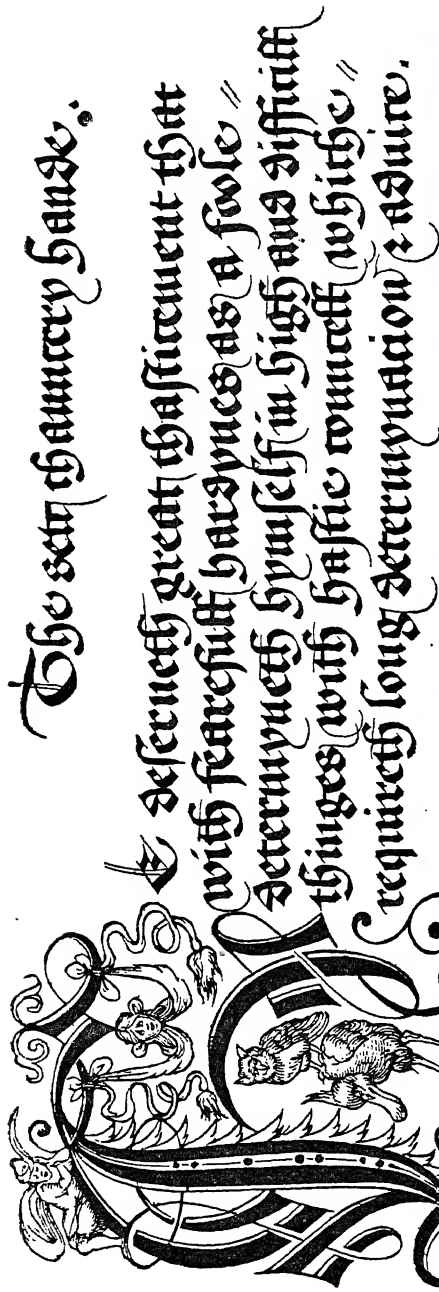 The sett chauncery hande.
HE deserueth great chasticement that
with fearefull hardynes as a foole //
determyneth hymself in high and difficill
thinges with hastie councell whiche //
requireth long determynacion & aduice.